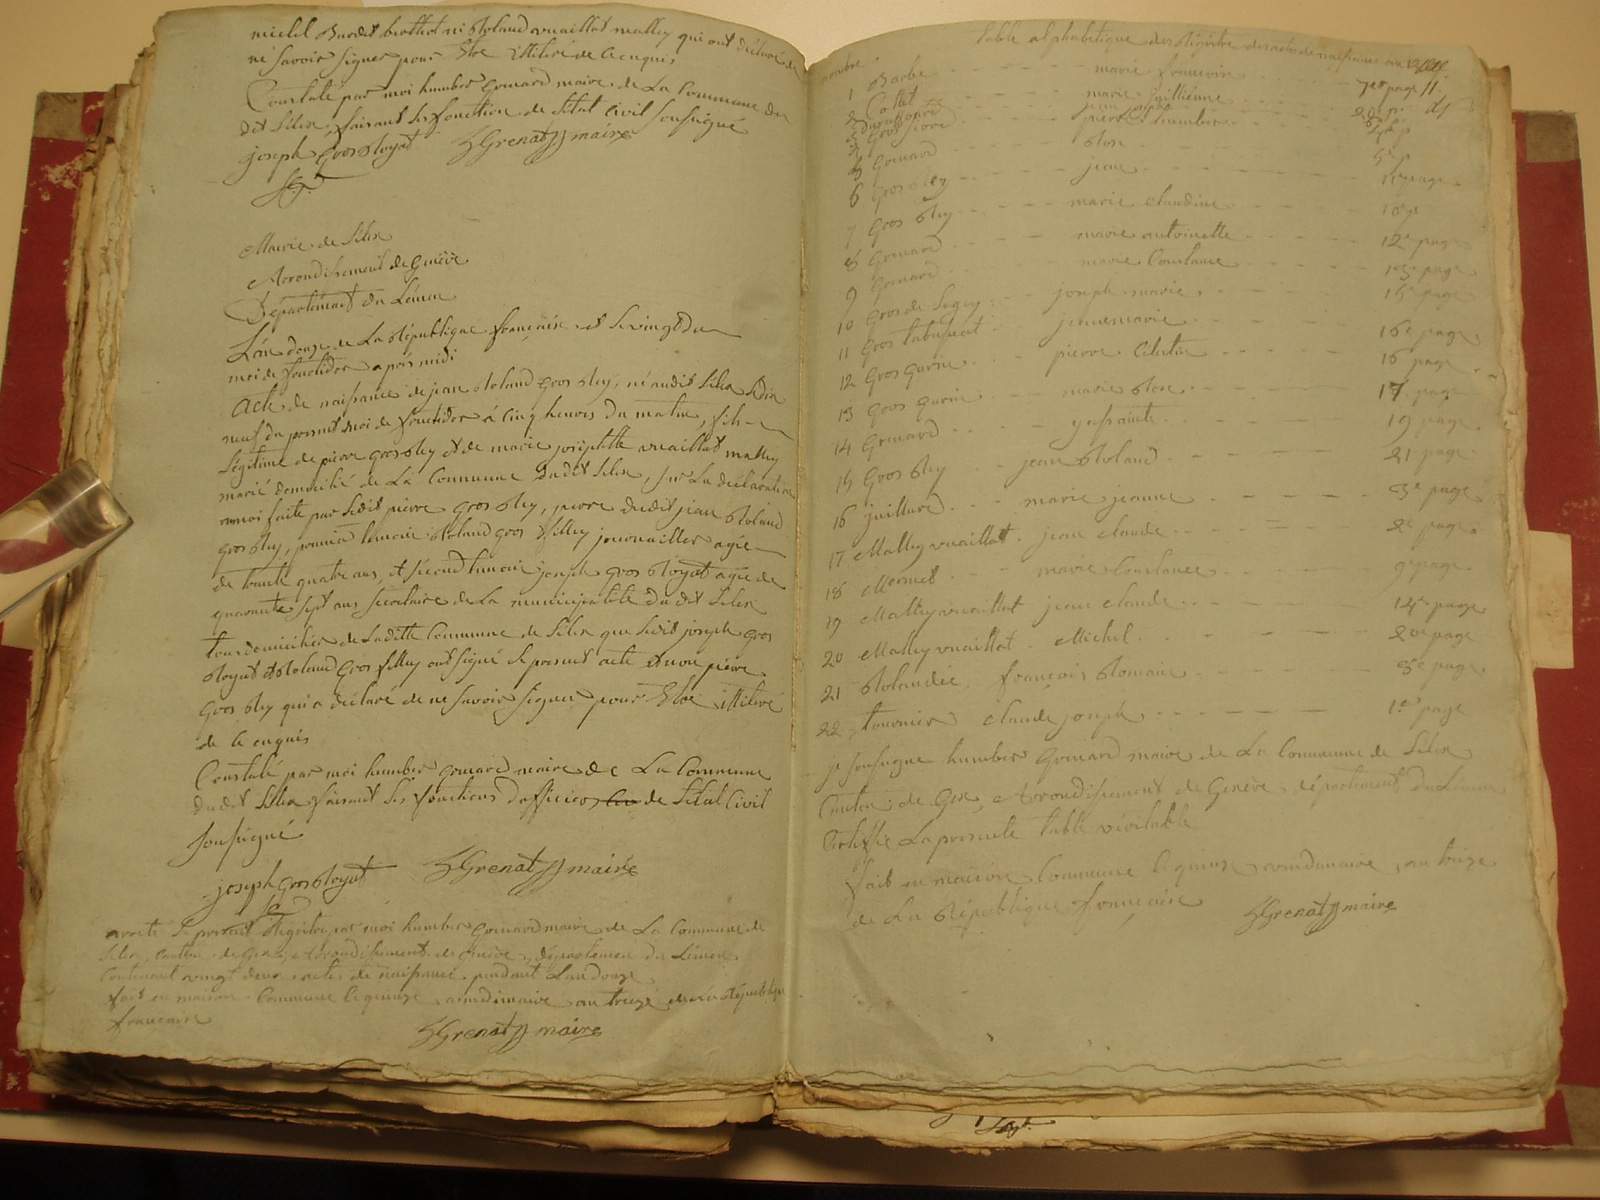 michel Burdet berthet ni Roland vuaillat malley qui ont déclaré de
ne savoir signer pour Etre illitéré de ce enquis
Constaté par moi humber Gonard maire de La Commune du
dit Lelex, faisant les fonction de l'état Civil Soussigné
joseph Gros Royat Grenat maire
Mairie de Lelex
Arrondissement de Genève
Département du Léman
L'an douze de La République française et le vingt du
moi de fructidor après midi
Acte de naissance de jean Roland Gros Rey, né audit Lelex le dix
neuf du present moi de fructidor à Cinq heures du matin, fils
Légitime de pierre gros Rey et de marie josephtte vuaillat malley
marié domicilié de La Commune dudit Lelex, sur La déclaration
à moi faite par ledit pierre Gros Rey, pierre dudit jean Roland
gros Rey, premier temoin Roland gros filley journaillier agée
de trente quatre ans, et second temoin joseph gros Royat agée de
quarante sept ans secretaire de La municipalité du dit Lelex
tous domiciliés de Laditte Commune de Lelex que ledit joseph Gros
Royat et Roland Gros filley ont signé le present acte et non pierre
Gros Rey qui a déclaré de ne savoir signer pour Etre illitéré
de ce enquis
Constaté par moi humber gonard maire de La Commune
dudit Lelex faisant les fonctions d'officier de l'état Civil
soussigné
joseph gros Royat Grenat maire
arreté le present Registre par moi humber Gonard maire de La Commune de
Lelex, canton de Gex, Arrondissement de Genève, département du Léman
Contenant vingt deux actes de naissance pendant L'an douze
fait en maison Commune le quinze vendemiaire an treize de la République
francaise
Grenat maire
table alphabetique des Régistre des actes de naissance an 12
nombre
1 Barbe marie francoise 7e page
2 Collet marie jullienne
4 Gros pierre humber
5 Gonard Rose 5e p
6 Gros Rey jean page
7 Gros Rey marie claudine 10 p
8 Gonard marie antoinette 12e page
9 Gonard marie Constance 13e page
10 Gros de Legey joseph marie 15e page
11 Gros jeannemarie 16e page
12 Gros Gurin pierre Celestin 16 page
13 Gros gurin marie Rose 17 page
14 Gonard 19 page
15 Gros Rey jean Roland 21 page
16 juillard marie jeanne 3e page
17 Malley vuaillat jean claude 2e page
18 Mermet marie Constance 9e page
19 Malley vuaillat jean claude 14e page
20 Malley vuaillat Michel 20e page
21 Rolandez françois Romain 5e page
22 tournier claude joseph 1er page
je soussigné humber Gonard maire de La Commune de Lelex
Canton de Gex, Arrondissement de Genève département du Léman
Certiffie La presente table véritable
fait en maison Commune le quinze vendemiaire an treize
de La République française Grenat maire